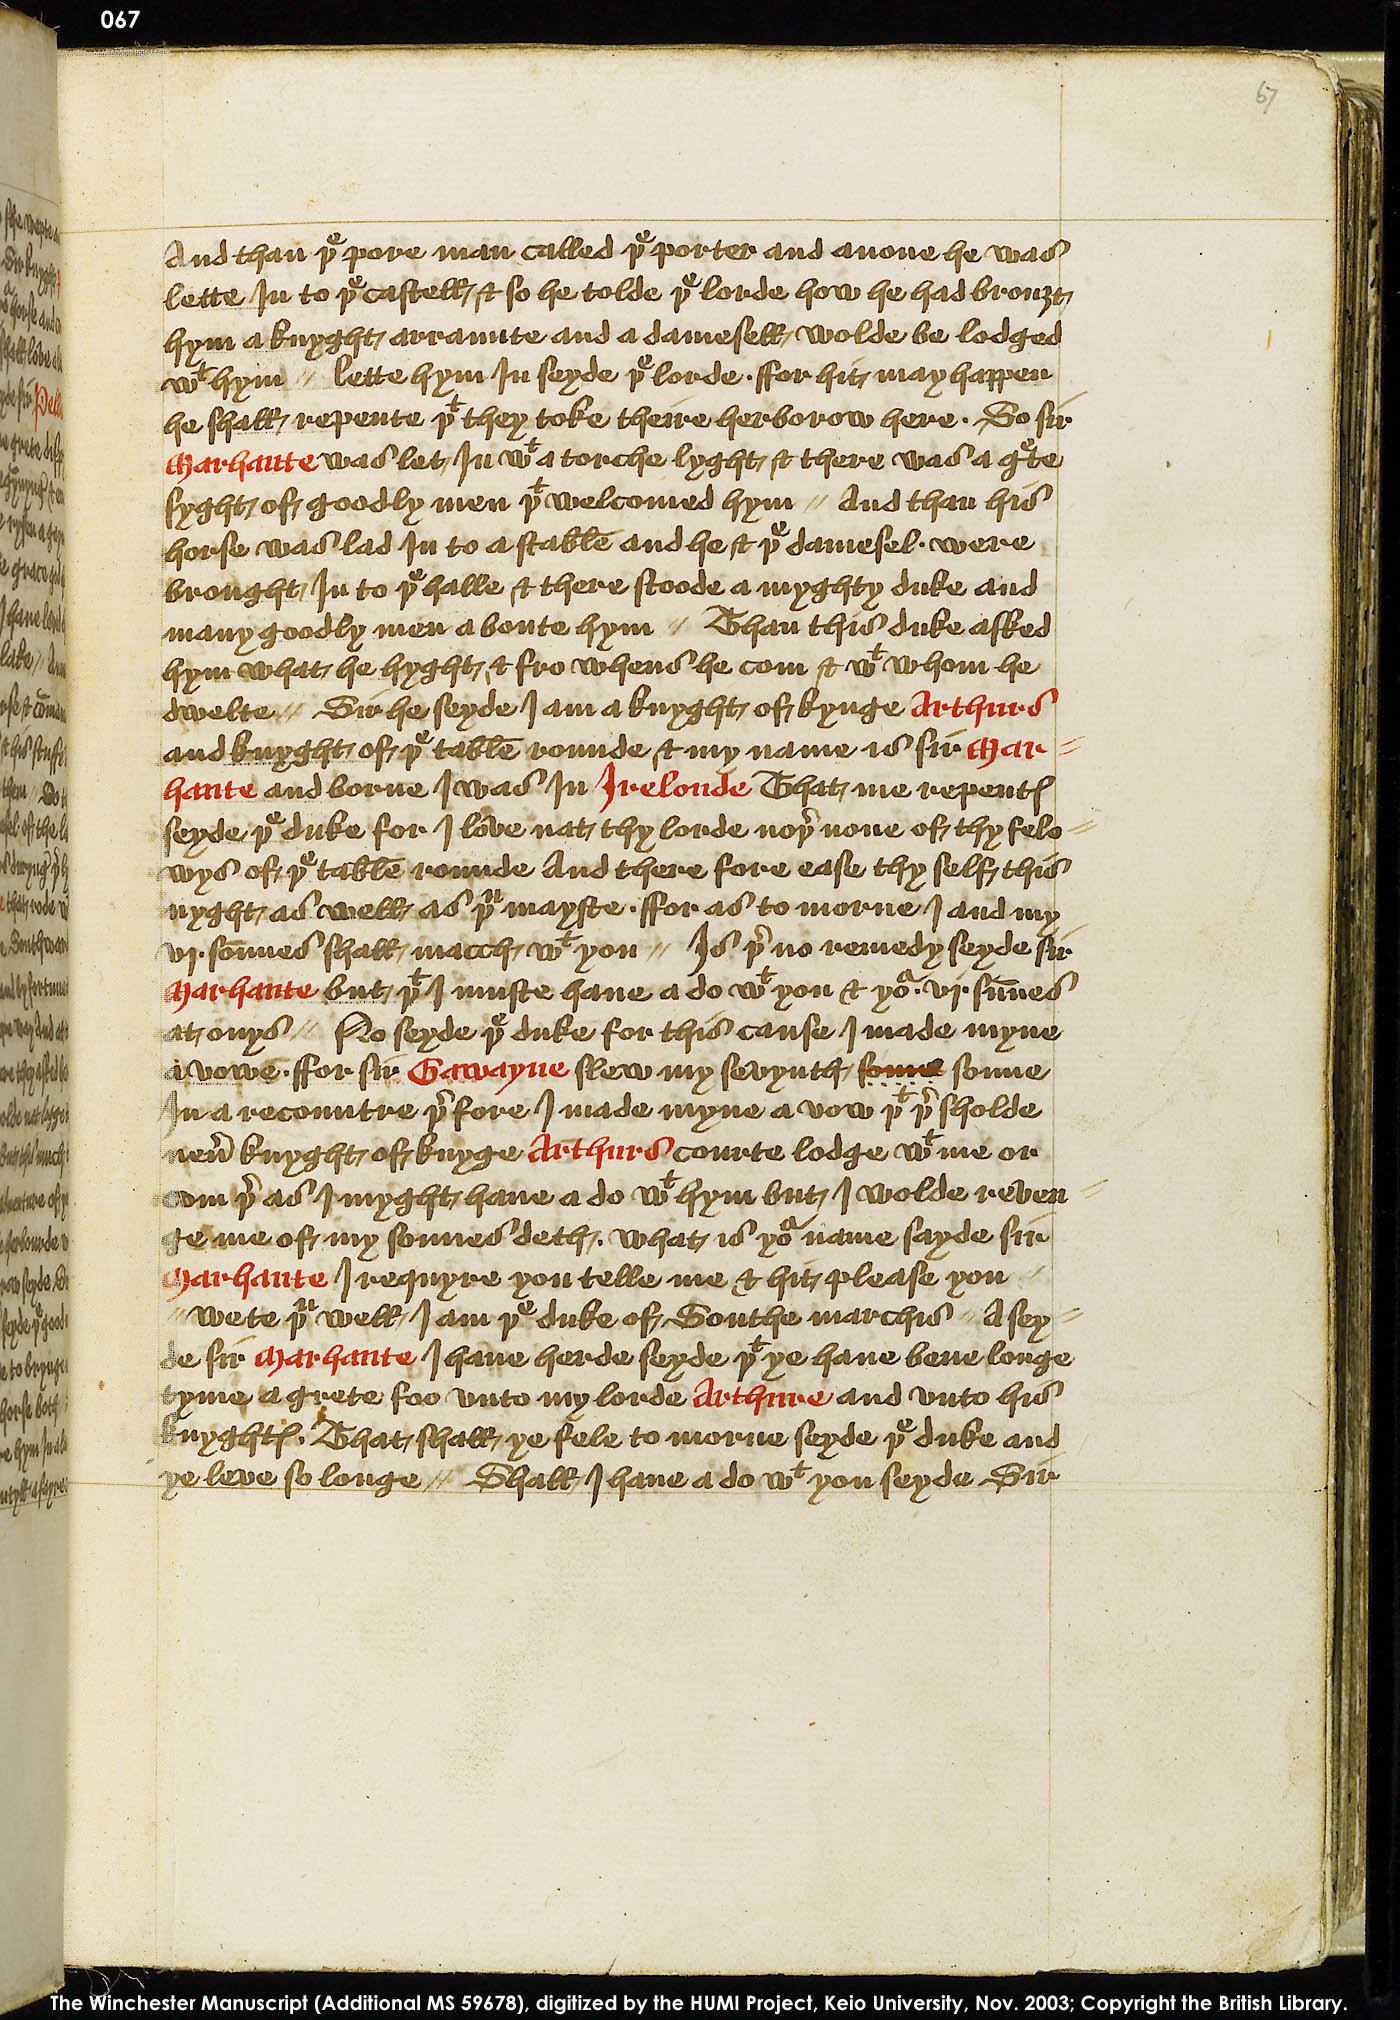 067
67
And than þe pore man called þe porter and anone he was
lette In to þe castell & so he tolde þe lorde how he had brouȝt
hym a knyght arraunte and a damesell wolde be lodged
wt hym // lette hym In seyde þe lorde · ffor hit may happen
he shall repente þt they toke theire herborow here · So sir
Marhaute was let In wt a torche lyght & there was a gete
syght of goodly men þt welcomed hym // And than his
horse was lad In to a stable and he & þe damesel · were
brought In to þe halle & there stoode a myghty duke and
many goodly men a boute hym // Than this duke asked
hym what he hyght & fro whens he com & wt whom he
dwelte // Sir he seyde I am a knyght of kynge Arthurs
and knyght of þe table rounde & my name is sir Mar=
haute and borne I was In Irelonde That me repentȝ
seyde þe duke for I love nat thy lorde noþr none of thy felo=
wys of þe table rounde And there fore ease thy self this
nyght as well as þu mayste · ffor as to morne I and my
vj. sonnes shall macch wt you // Is þr no remedy seyde sir
Marhaute but þt I muste haue a do wt you & yor · vj. sunnes
at onys // No seyde þe duke for this cause I made myne
a vowe · ffor sir Gawayne slew my sevynth sonne sonne
In a recountre þr fore I made myne a vow þt þr sholde
neuer knyght of kynge Arthurs courte lodge wt me or
com þr as I myght haue a do wt hym but I wolde reven=
ge me of my sonnes deth · what is yor name sayde sir
Marhaute I requyre you telle me & hit please you //
// wete þu well I am þe duke of Southe marchis // A sey=
de sir Marhaute I haue herde seyde þt ye haue bene longe
tyme a grete foo vnto my lorde Arthure and vnto his
knyghtȝ · That shall ye fele to morne seyde þe duke and
ye leve so longe // Shall I haue a do wt you seyde Sir
The Winchester Manuscript (Additional MS 59678), digitized by the HUMI Project, Keio University, Nov. 2003; Copyright the British Library.